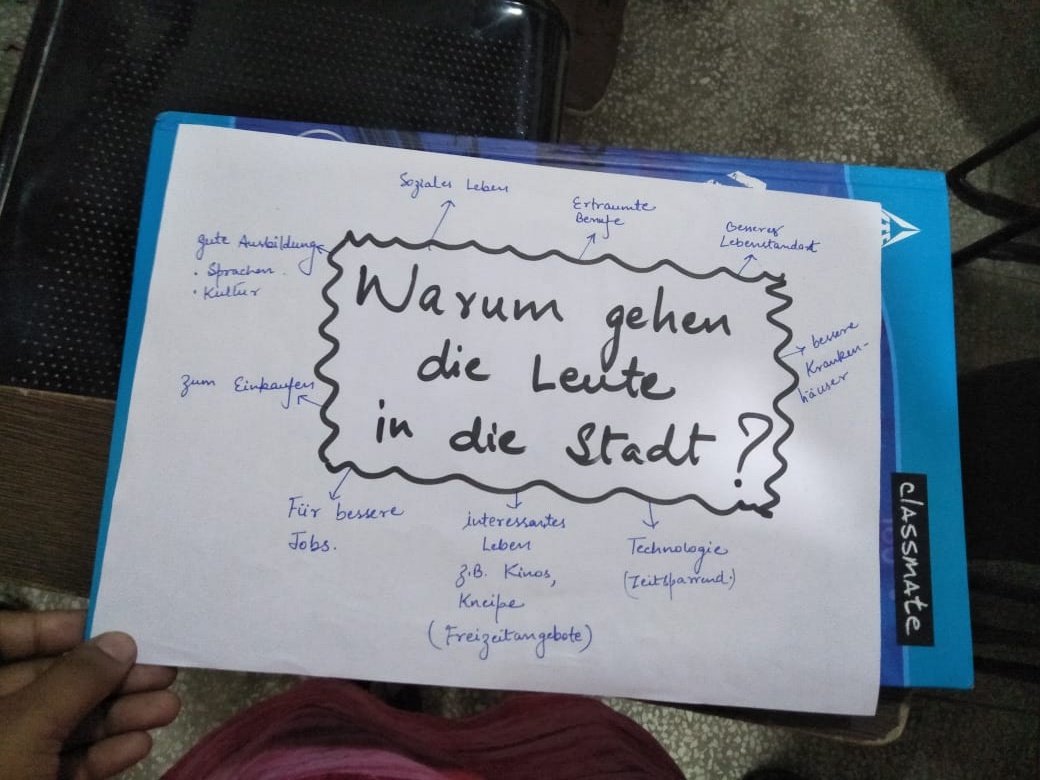 Soziales Leben
Ertraumte
Berufe
Besseres
Lebenstandart
gute Ausbildung
• Sprachen
• Kultur
Warum gehen
die Leute
in die Stadt?
bessere
Kranken-
häuser
zum Einkaufen
Für bessere
Jobs.
interessantes
Leben
z.B. Kinos,
Kneipe
(Freizeitangebote)
Technologie
(Zeitsparrend.)
classmate